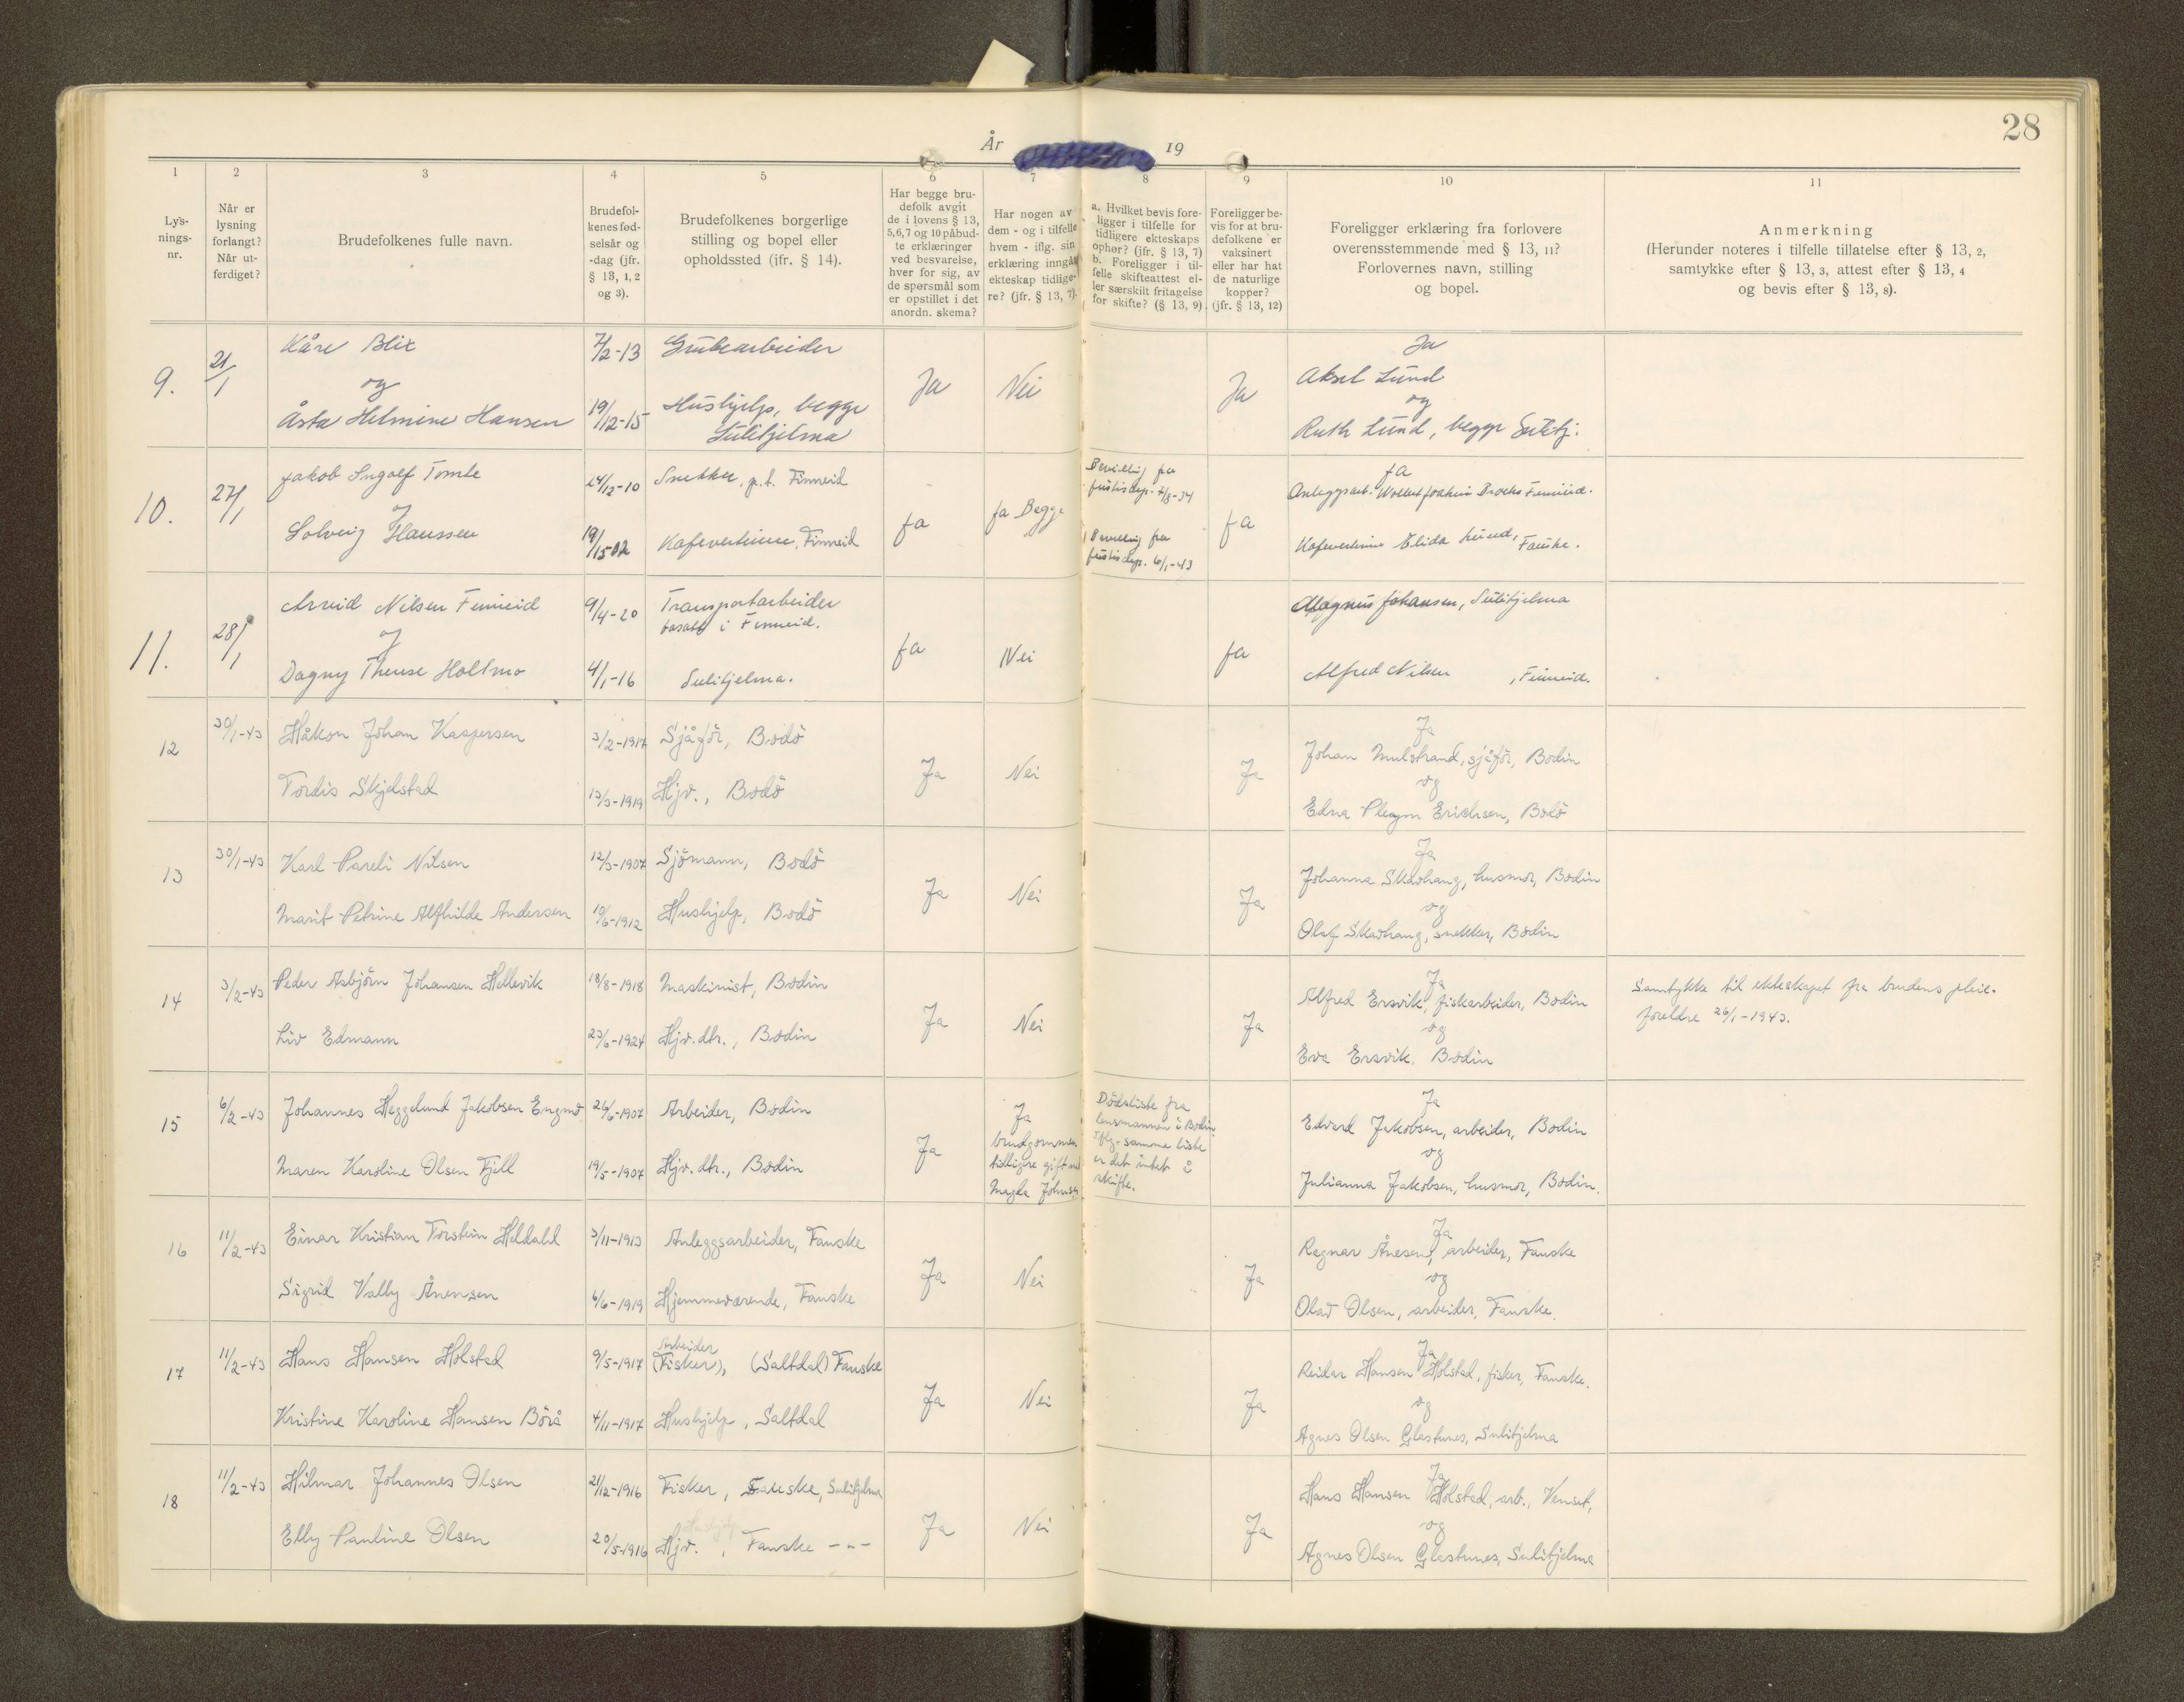 28
År 19
1 2 3 4 5 6 7 8 9 10 11
Lys-
nings-
nr.
Når er
lysning
forlangt?
Når ut-
ferdiget?
Brudefolkenes fulle navn.
Brudefol-
kenes fød-
selsår og
-dag (jfr.
§ 13, 1, 2
og 3).
Brudefolkenes borgerlige
stilling og bopel eller
opholdssted (ifr. § 14).
Har begge bru-
defolk avgit
de i lovens § 13,
5,6,7 og 10 påbud-
te erklæringer
ved besvarelse,
hver for sig, av
de spørsmål som
er opstillet i det
anordn. skema?
Har nogen av
dem - og i tilfelle
hvem - iflg. sin
erklæring inngåt
ekteskap tidlige-
re? (jfr. § 13, 7).
a. Hvilket bevis fore-
ligger i tilfelle for
tidligere ekteskaps
ophør? (jfr. § 13, 7)
b. Foreligger i til-
felle skifteattest el-
ler særskilt fritagelse
for skifte? (§ 13, 9)
Foreligger be-
vis for at bru-
defolkene er
vaksinert
eller har hat
de naturlige
kopper?
(jfr. § 13, 12)
Foreligger erklæring fra forlovere
overensstemmende med § 13, 11?
Forlovernes navn, stilling
og bopel.
Anmerkning
(Herunder noteres i tilfelle tillatelse efter § 13, 2,
samtykke efter § 13, 3, attest efter § 13, 4
og bevis efter § 13, 8).
9. 21/1 Kåre Blix 7/2-13 Grubearbeider Ja Nei Ja Ja
og Aksel Lund
og
Åsta Helmine Hansen 19/12-15 Hushjelp, begge Ruth Lund, begge Sulitj.
Sulitjelma
10. 27/1 Jakob Ingolf Tomte 24/12-10 Snekker, p.t. Finneid Ja Ja Begge Bevilling fra Ja Ja
justisdep. 4/8-34 Anleggsarb. Finneid.
og
Solveig Hanssen 19/15-02 Kafevertinne, Finneid Bevilling fra Kafevertinne Elida Lund, Fauske.
justisdep. 6/1-43
11. 28/1 Arvid Nilsen Finneid 9/4-20 Transportarbeider Ja Nei Ja Magnus Johansen, Sulitjelma
bosatt i Finneid.
og
Dagny Therese Holtmo 4/1-16 Sulitjelma. Alfred Nilsen, Finneid.
12 30/1-43 Håkon Johan Kaspersen 3/2-1917 Sjåfør, Bodö Ja Nei Ja Ja
Johan Mulstrand, sjåför, Bodin
og
Tordis Skjelstad 13/3-1919 Hjv., Bodö Edna Pleym Erichsen, Bodö
13 30/1-43 Karl Pareli Nilsen 12/3-1907 Sjömann, Bodö Ja Nei Ja Ja
Johanna Skarhaug, husmor, Bodin
og
Marit Petrine Alfhilde Andersen 10/6-1912 Hushjelp, Bodö Olaf Skarhaug, snekker, Bodin
14 3/2-43 Peder Asbjörn Johansen Hellevik 18/8-1918 Maskinist, Bodin Ja Nei Ja Ja
Alfred Ersvik, fiskarbeider, Bodin Samtykke til ekteskapet fra brudens pleie-
foreldre 26/1-1943.
og
Liv Edmann 23/6-1924 Hjv.dtr., Bodin Eva Ersvik. Bodin
15 6/2-43 Johannes Heggelund Jakobsen Engmo 26/6-1907 Arbeider, Bodin Ja Ja
brudgommen
tidligere gift med
Magda Johnsen Dödsliste fra
lensmannen i Bodin.
Iflg. samme liste
er det intet å
skifte. Ja
Edvard Jakobsen, arbeider, Bodin
og
Maren Karoline Olsen Fjell 19/5-1907 Hjv.dtr., Bodin Julianna Jakobsen, husmor, Bodin.
16 11/2-43 Einar Kristian Torstein Heldahl 3/11-1913 Anleggsarbeider, Fauske Ja Nei Ja Ja
Ragnar Ånesen, arbeider, Fauske
og
Sigrid Valby Ånensen 6/6-1919 Hjemmeværende, Fauske Olav Olsen, arbeider, Fauske.
17 11/2-43 Hans Hansen Holstad 9/5-1917 Arbeider
(Fisker), (Saltdal) Fauske Ja Nei Ja Ja
Reidar Hansen Holstad, fisker, Fauske.
og
Kristine Karoline Hansen Börå 4/11-1917 Hushjelp, Saltdal Agnes Olsen Glastunes, Sulitjelma
18 11/2-43 Hilmar Johannes Olsen 21/12-1916 Fisker, Fauske, Sulitjelma Ja Nei Ja Ja
Hans Hansen Holstad, arb., Venset,
og
Elly Pauline Olsen 20/5-1916 Hjv., Fauske -"- Agnes Olsen Glastunes, Sulitjelma